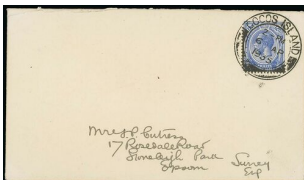 COCOS ISLAND
Mrs J.P. Cutress
17 Rosedale Road
Stoneleigh Park
Epsom Surrey